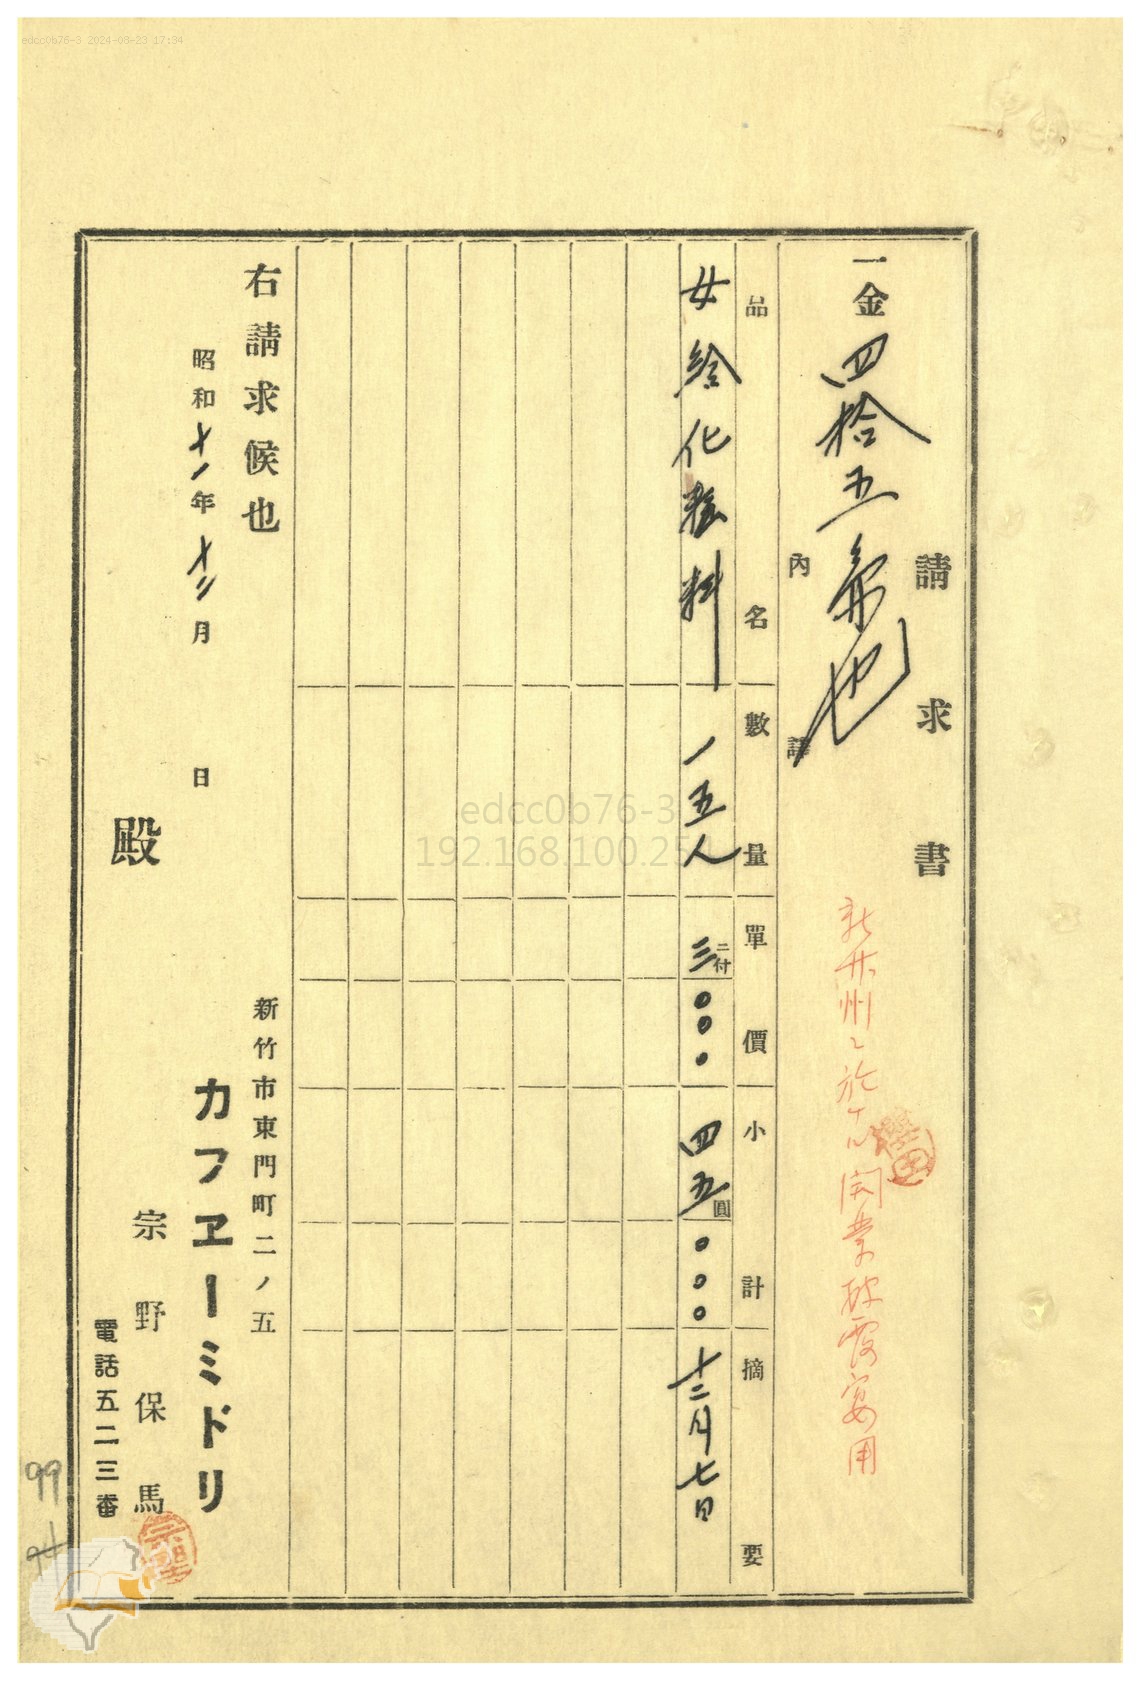 edcc0b76-3 2024-08-23 17:34
請求書
一金四拾五圓也
新竹州ニ於ケル開業披露宴用
內譯
品名 數量 單價 小計 摘要
女給化粧料 一五人 二付 三〇〇〇 四五圓〇〇〇 十二月七日
右請求候也
昭和十一年十二月 日
新竹市東門町二ノ五
カフヱーミドリ
宗野保馬
電話五二三番
殿
edcc0b76-3
99
94